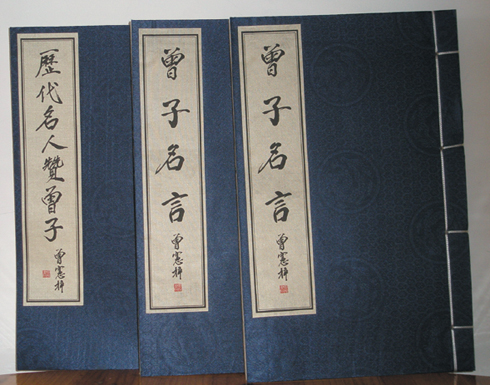 歷代名人贊曾子
曾憲梓
曾子名言
曾憲梓
曾子名言
曾憲梓